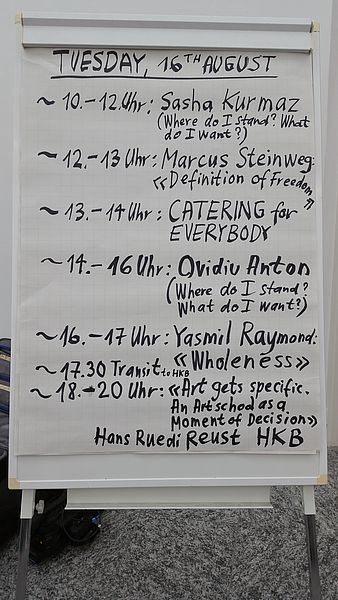 TUESDAY, 16TH AUGUST
~ 10.-12 Uhr: Sasha Kurmaz
(Where do I stand? What
do I want?)
~ 12.-13 Uhr: Marcus Steinweg:
«Definition of Freedom»
~ 13.-14 Uhr: CATERING for
EVERYBODY
~ 14.-16 Uhr: Ovidiu Anton
(Where do I stand?
What do I want?)
~ 16.-17 Uhr: Yasmil Raymond:
«Wholeness»
~ 17.30 Transit to HKB
~ 18.-20 Uhr: «Art gets specific.
An Artschool as a
Moment of Decision»
Hans Ruedi Reust HKB